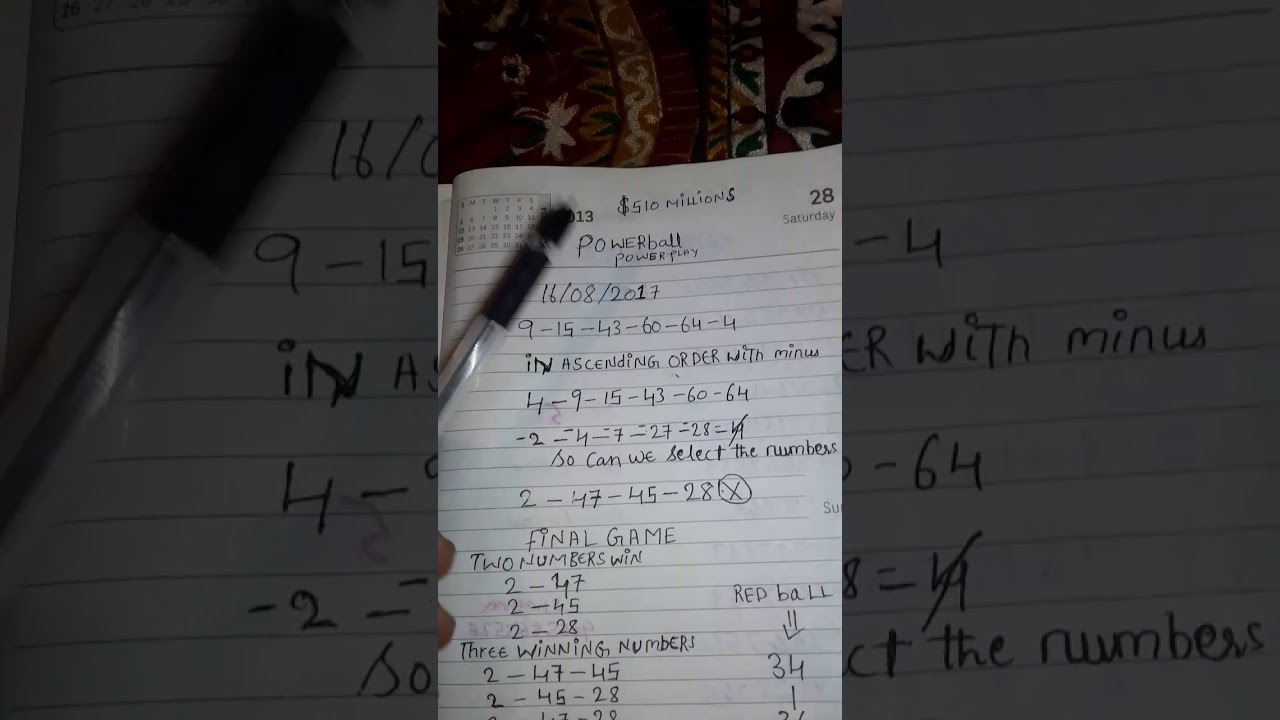 $510 MILLIONS
2013
28
Saturday
POWERball
POWERPLAY
16/08/2017
9-15-43-60-64-4
iN ASCENdiNG ORDER with minus
4-9-15-43-60-64
-2=4=7=27=28=
so can we select the numbers
2-47-45-28 X
FiNAL GAME
TWO NUMBERS WiN
2-47
2-45
2-28
RED baLL
Three WiNNiNG NUMBERS
2-47-45
34
2-45-28
1